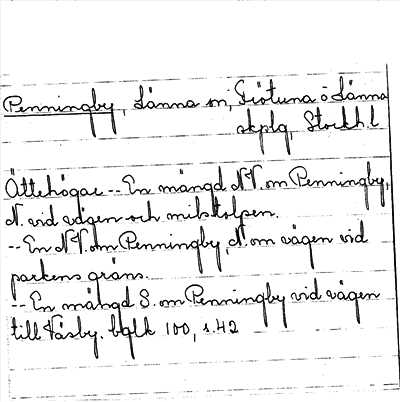 Penningby, Länna sn, Frötuna o Länna
skplg, Stockh. l
Ättehögar -- En mängd N.V. om Penningby,
N. vid vägen och milstolpen.
-- En N.V. om Penningby, N. om vägen vid
parkens gräns.
-- En mängd S. om Penningby vid vägen
till Väsby. bglk 100, s. 42